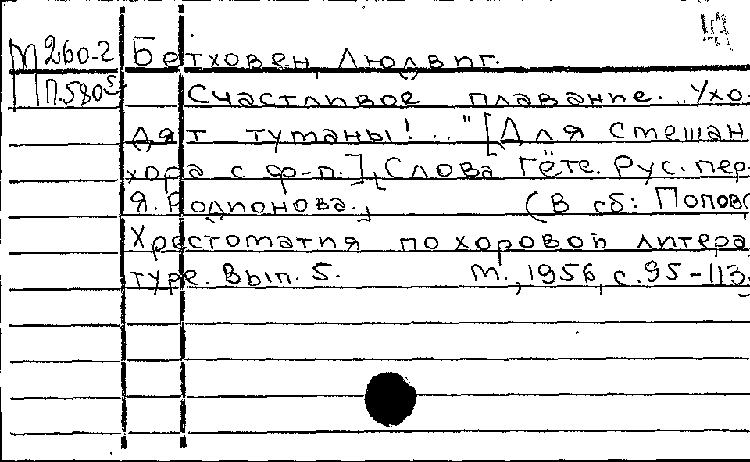 М 260-2
П.580⁵
Бетховен, Людвиг.
Счастливое плавание. „Ухо-
дят туманы!.." [Для смешан
хора с ф-п.], Слова Гёте. Рус. пер.
Я. Родионова., (В сб: Попов
Хрестоматия по хоровой литера
туре. Вып. 5. М., 1956, с. 95-113.